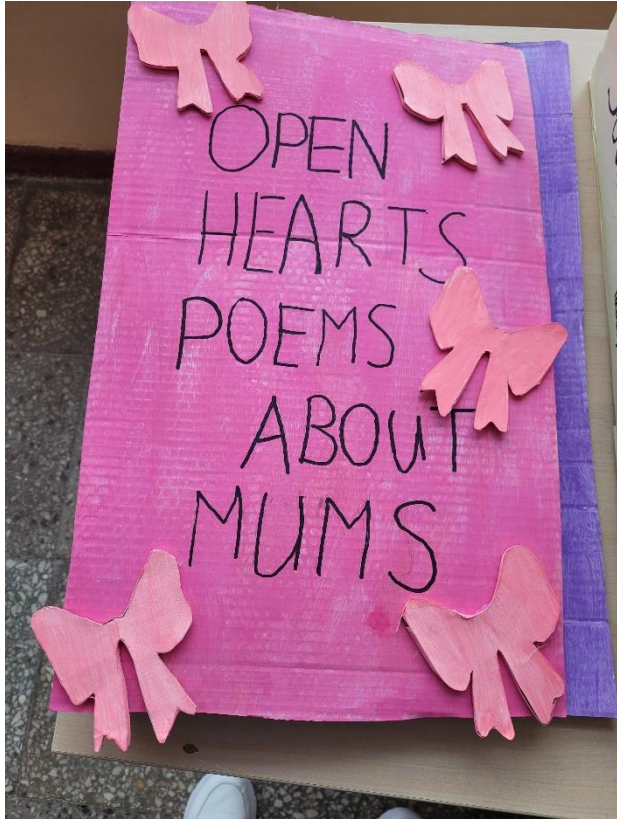 OPEN
HEARTS
POEMS
ABOUT
MUMS